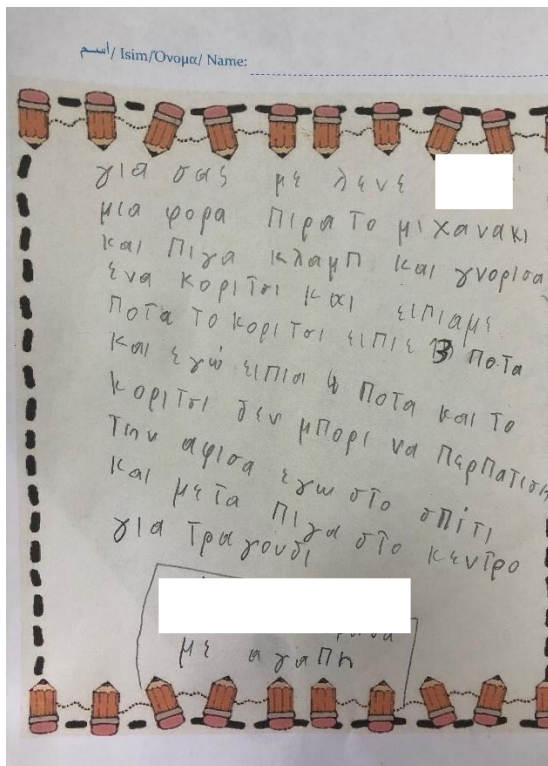 اسم/ Isim/Όνομα/ Name:
για σας με λενε
μια φορα πιρα το μιχανακι
και πιγα κλαμπ και γνορισα
ενα κοριτσι και ειπιαμε
ποτα το κοριτσι ειπιε 3 ποτα
και εγώ ειπια 4 ποτα και το
κοριτσι δεν μπορι να περπατιση
την αφισα εγω στο σπίτι
και μετα πιγα στο κεντρο
για τραγουδι
με αγαπη